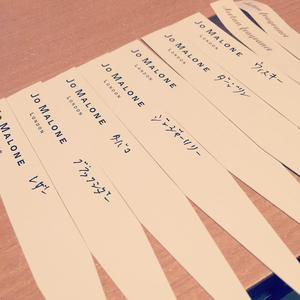 JO MALONE
LONDON
レザー
JO MALONE
LONDON
JO MALONE
LONDON
タバコ
JO MALONE
LONDON
ジンジャーリリー
JO MALONE
LONDON
JO MALONE
LONDON
ウィスキー